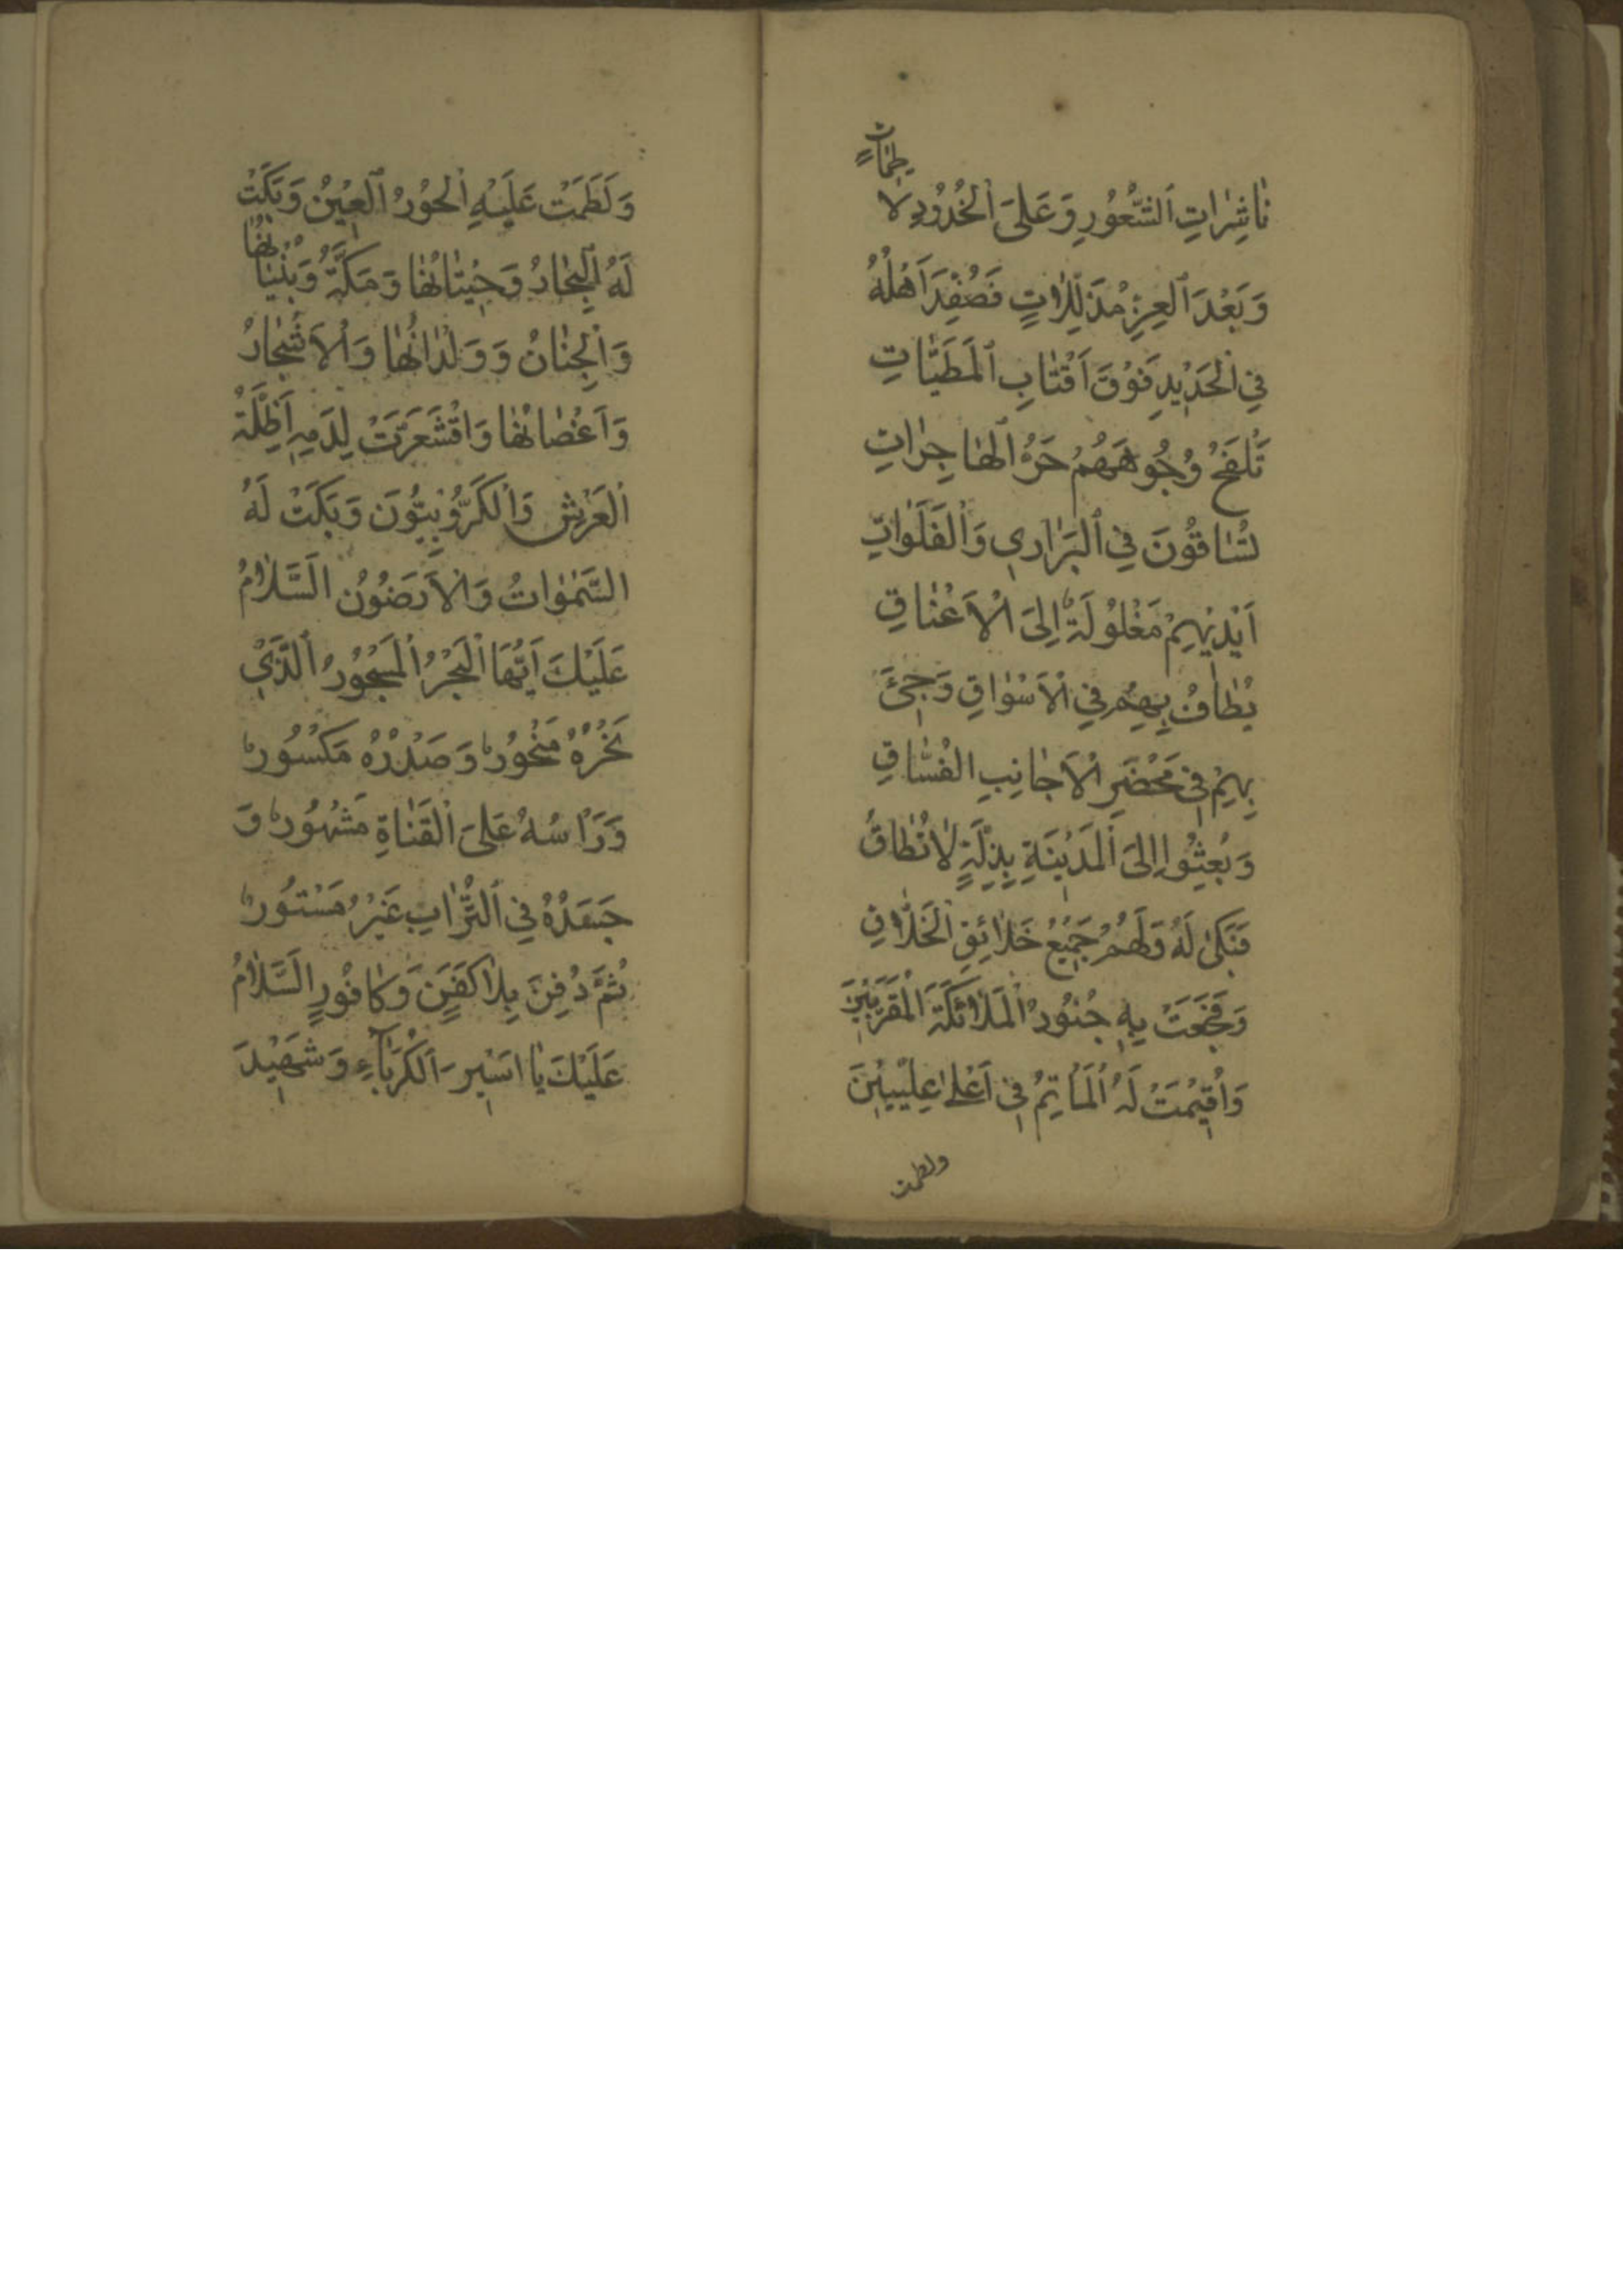 نٰاشِرٰاتِ اَلشُّعُورِ وَعَلىَ اْلخُدُودِ لاٰطِمٰاتٍ
وَبَعْدَ اْلعِزِّ مُذَلِّلاٰتٍ فَصُفِّدَ اَهْلُهُ
فِي اْلحَدْيدِ فَوْقَ اَقْتٰابِ اْلمَطَيّٰاتِ
تَلْفَحُ وُجُوهَهُمْ حَرُّ اْلهٰاجِرٰاتِ
تُسٰاقُونَ فِي اْلبَرٰارِي وَاْلفَلَوٰاتِ
اَيْديْهِمْ مَغْلُوُلَةٌ اِلىَ اْلاَعْنٰاقِ
يُطٰافُ بِهِمْ فِي اْلاَسْوٰاقِ وَجِيْئَ
بِهِمْ فِي مَحْضَرِ اْلاَجٰانِبِ الْفُسّٰاقِ
وَبُعِثُوا اِلىَ اْلمَدْيْنَةِ بِذِلَّةٍ لاٰتُطٰاقُ
فَبَكىٰ لَهُ وَلَهُمْ جَميْعُ خَلاٰئِقِ اْلخَلاّٰقِ
وَفَجَعَتْ بِهِ جُنُودُ اْلمَلاٰئِكَةِ اْلمُقَرَّبيْنَ
وَاُقيْمَتْ لَهُ اْلمَاٰتِمُ في اَعْلىٰ عِلِّييْنَ
ولطمت
وَلَطَمَتْ عَلَيْهِ اْلحُوْرُ اْلعيْنُ وَبَكَتْ
لَهُ اْلبِحٰارُ وَحيْتٰانُهٰا وَمَكَّةُ وَبُنْيٰانُهٰا
وَاْلجِنٰانُ وَوَلْدٰانُهٰا وَاْلاَشْجٰارُ
وَاَغْصٰانُهٰا وَاقْشَعَرَّتْ لِدَمِهِ اَظِلَّةُ
اْلعَرْشِ وَاْلكَرُّوُبِيُّونَ وَبَكَتْ لَهُ
السَّمٰوٰاتُ وَاْلاَرَضُوُنَ اَلسَّلاٰمُ
عَلَيْكَ اَيُّهَا اْلبَحْرُ اْلمَسْجُوُرُ اْلَّذي
نَحْرُهُ مَنْحُوُرٌ وَصَدْرُهُ مَكْسُوُرٌ
وَرَاْسُهُ عَلىَ اْلقَنٰاةِ مَشْهُوُرٌ وَ
جَسَدُهُ فِي اْلتُّرٰابِ غَيْرُ مَسْتُوُرٌ
ثُمَّ دُفِنَ بِلاٰ كَفَنٍ وَكٰافُورٍ اَلسَّلاٰمُ
عَلَيْكَ يٰا اَسيْرَ اَلْكُرَبٰآءِ وَشَهيْدَ